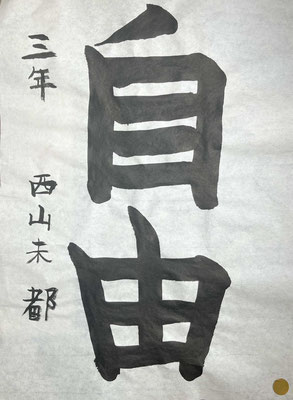 自由
三年 西山未都